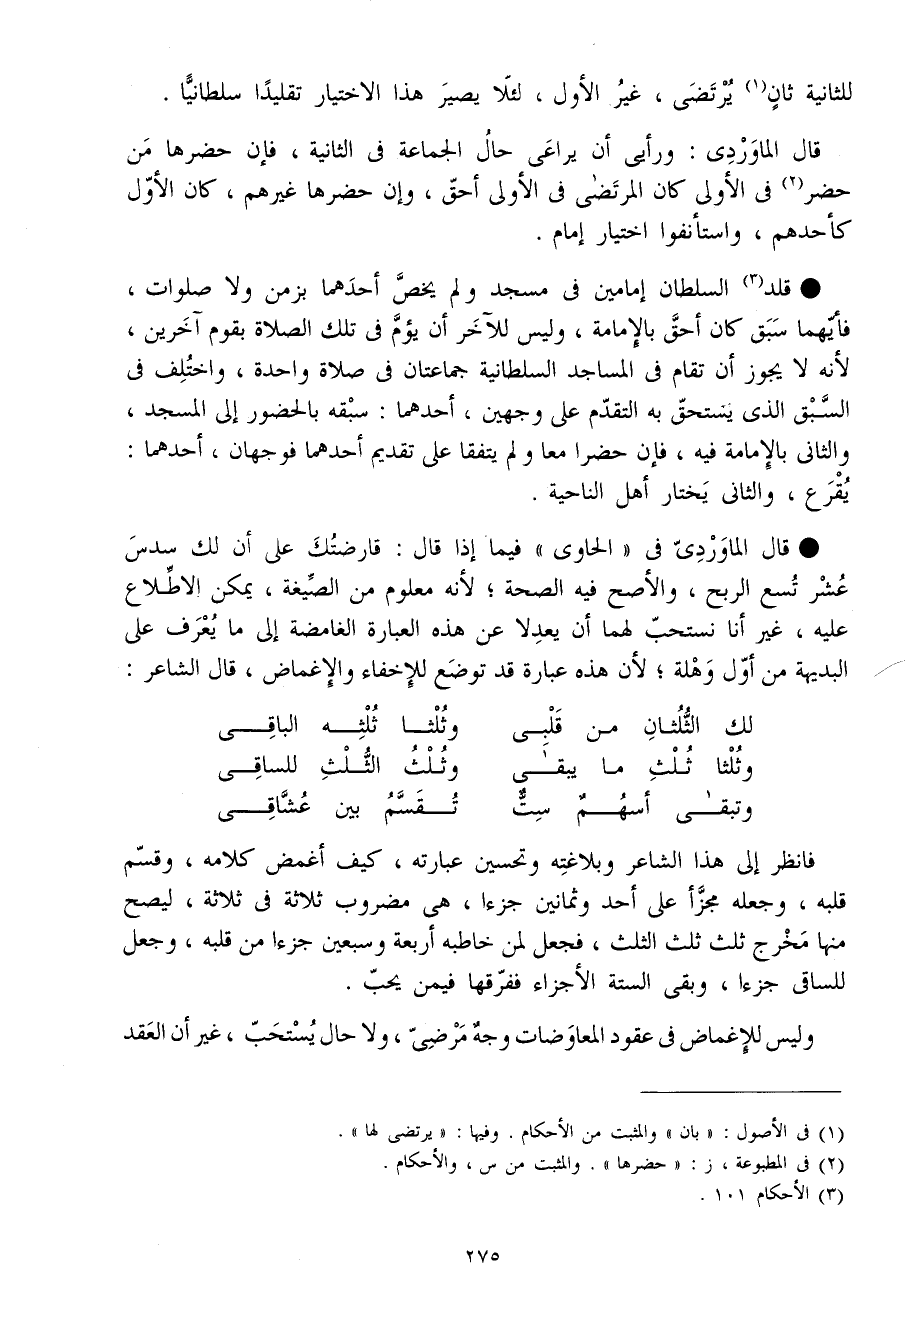 للثانية ثانٍ(١) يُرْتَضَى ، غيرُ الأول ، لئلّا يصيرَ هذا الاختيار تقليدًا سلطانيًّا .
قال الماوَرْدِى : ورأيى أن يراعَى حالُ الجماعة فى الثانية ، فإن حضرها مَن
حضر(٢) فى الأولى كان المرتَضٰى فى الأولى أحقّ ، وإن حضرها غيرهم ، كان الأوّل
كأحدهم ، واستأنفوا اختيار إمام .
● قلد(٣) السلطان إمامين فى مسجد ولم يخصَّ أحدَهما بزمن ولا صلوات ،
فأيّهما سَبَق كان أحقَّ بالإمامة ، وليس للآخر أن يؤمَّ فى تلك الصلاة بقوم آخَرين ،
لأنه لا يجوز أن تقام فى المساجد السلطانية جماعتان فى صلاة واحدة ، واختُلِف فى
السَّبْق الذى يَستحقّ به التقدّم على وجهين ، أحدهما : سبْقه بالحضور إلى المسجد ،
والثانى بالإمامة فيه ، فإن حضرا معا ولم يتفقا على تقديم أحدهما فوجهان ، أحدهما :
يُقْرَع ، والثانى يَختار أهل الناحية .
● قال الماوَرْدِىّ فى « الحاوى » فيما إذا قال : قارضتُكَ على أن لك سدسَ
عُشْر تُسع الربح ، والأصح فيه الصحة ؛ لأنه معلوم من الصِّيغة ، يمكن الاطِّلاع
عليه ، غير أنا نستحبّ لهما أن يعدِلا عن هذه العبارة الغامضة إلى ما يُعْرَف على
البديهة من أوّل وَهْلة ؛ لأن هذه عبارة قد توضَع للإخفاء والإغماض ، قال الشاعر :
لك الثُّلُثـانِ مـن قَلْبِـى وثُلْثـــا ثُلْثِـــه الباقِـــى
وثُلْثا ثُـلْثِ مـا يبقـٰـى وثُـلْـثُ الثُّـلْـثِ للساقِـى
وتبقـٰى أسهُـــمٌ سِتٌّ تُـــقَسَّمُ بين عُشَّاقِـــى
فانظر إلى هذا الشاعر وبلاغتِه وتحسين عبارته ، كيف أغمض كلامه ، وقسّم
قلبه ، وجعله مجزَّأ على أحد وثمانين جزءا ، هى مضروب ثلاثة فى ثلاثة ، ليصح
منها مَخْرج ثلث ثلث الثلث ، فجعل لمن خاطبه أربعة وسبعين جزءا من قلبه ، وجعل
للساقى جزءا ، وبقى الستة الأجزاء ففرّقها فيمن يحبّ .
وليس للإغماض فى عقود المعاوَضات وجهٌ مَرْضِىّ ، ولا حال يُسْتَحَبّ ، غير أن العَقد
(١) فى الأصول : « بان » والمثبت من الأحكام . وفيها : « يرتضى لها » .
(٢) فى المطبوعة ، ز : « حضرها » . والمثبت من س ، والأحكام .
(٣) الأحكام ١٠١ .
٢٧٥